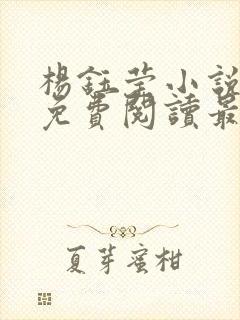 楊鈺瑩小說
免費閱讀最
夏芽蜜柑